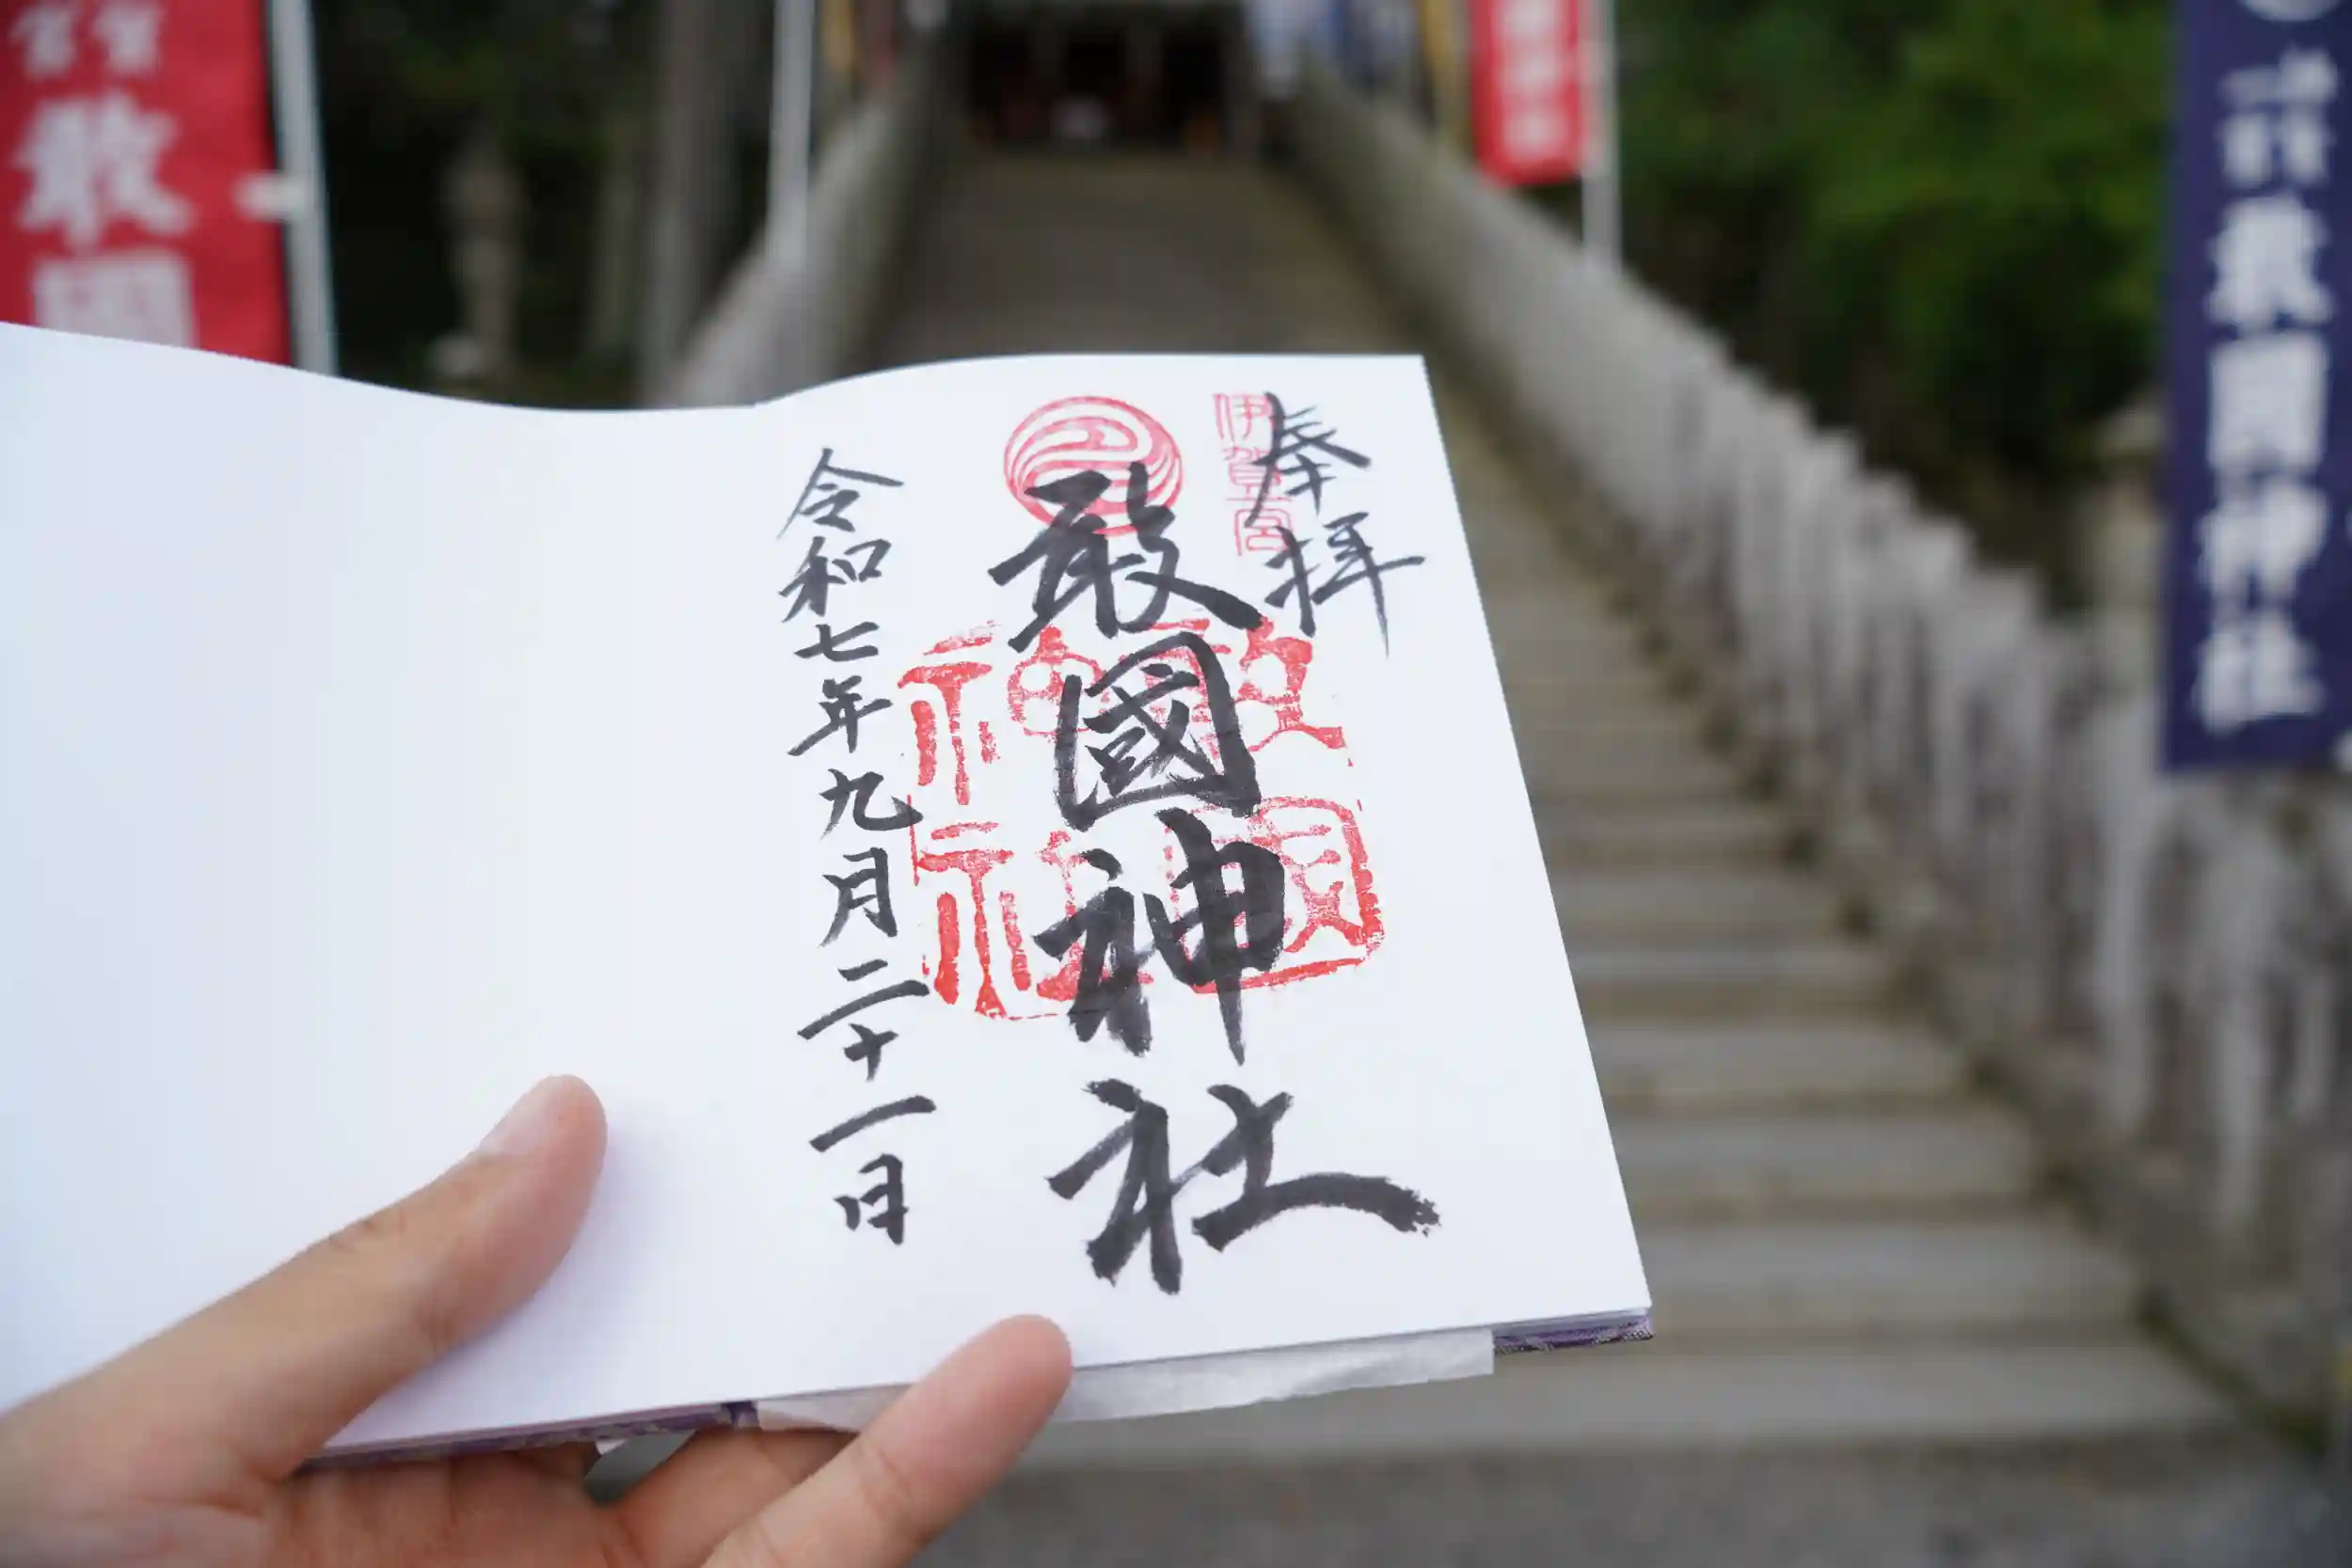 奉拝
伊賀一宮
敢國神社
令和七年九月二十一日
敢國
敢國神社